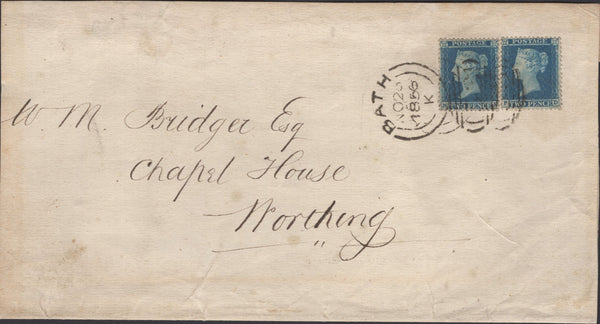 POSTAGE POSTAGE
TWO PENCE TWO PENCE
BATH
1856
K
W. M. Bridger Esq
Chapel House
Worthing
"